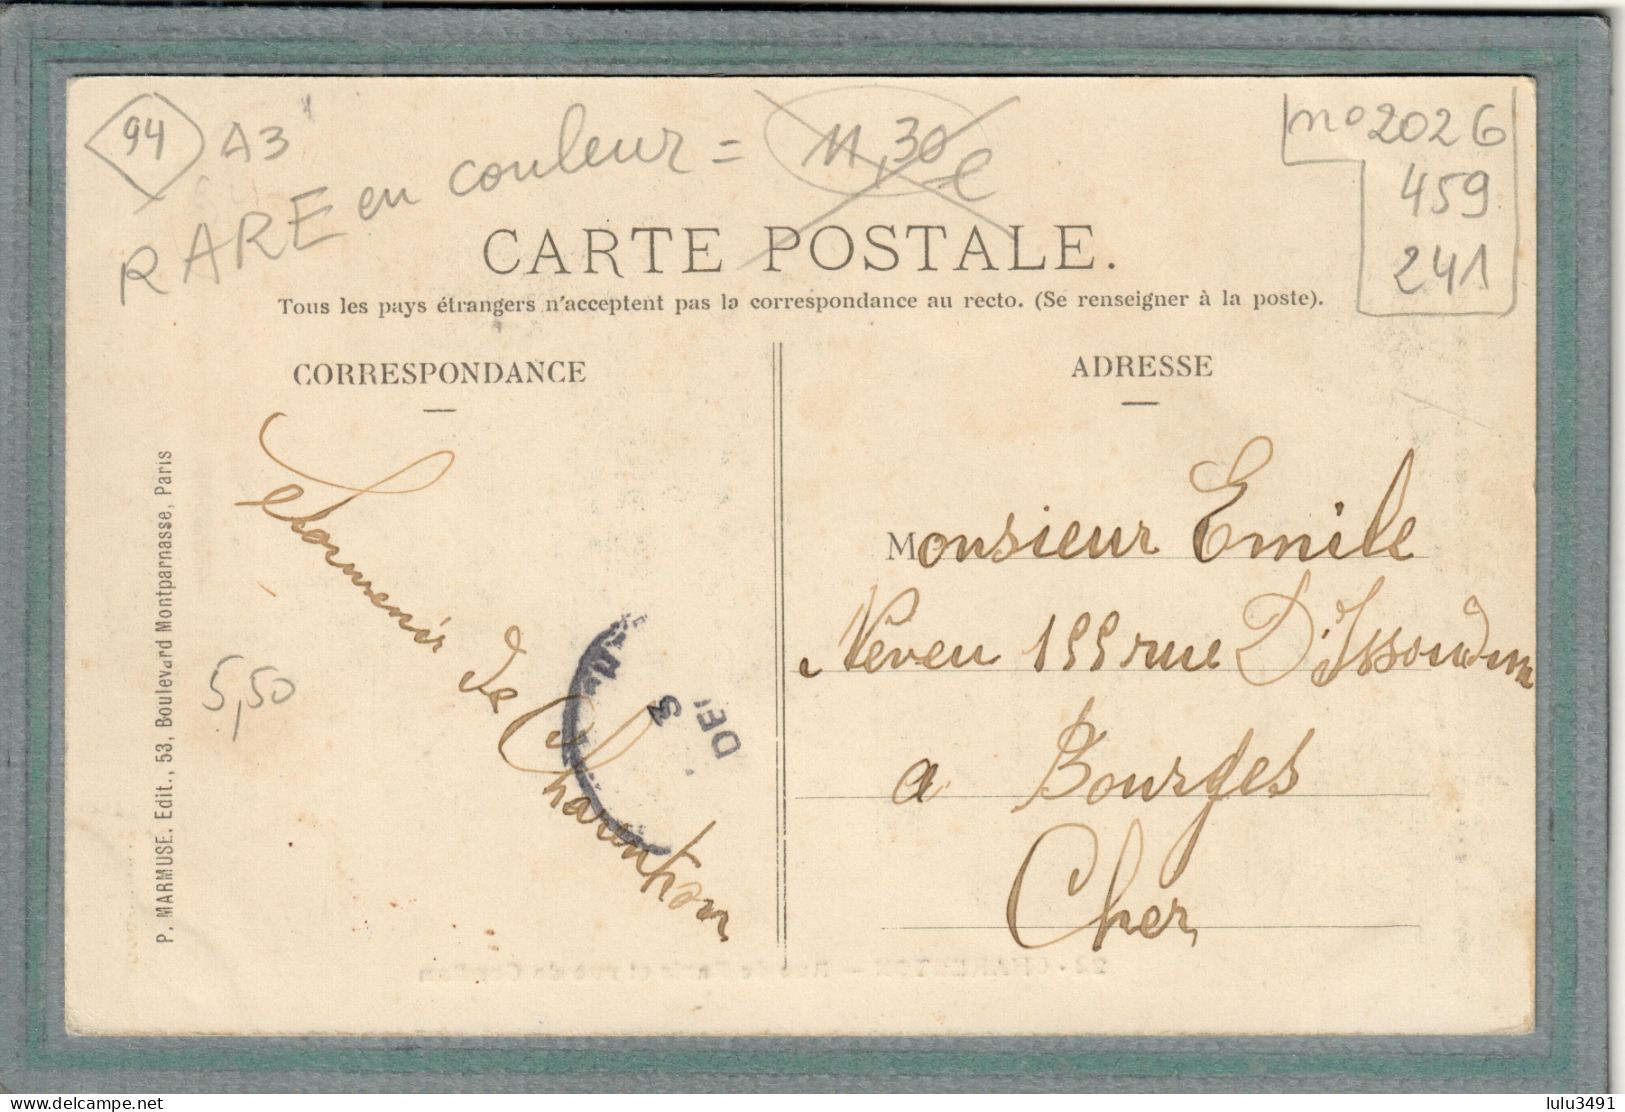 94
A3
RARE en couleur = 11,30 €
no 2026
459
241
CARTE POSTALE.
Tous les pays étrangers n'acceptent pas la correspondance au recto. (Se renseigner à la poste).
CORRESPONDANCE
ADRESSE
P. MARMUSE. Edit., 53, Boulevard Montparnasse, Paris
Souvenir
de
Charenton
5,50
3
Monsieur Emile
Neveu 155 rue D'Issoudun
a Bourges
Cher
www.delcampe.net
lulu3491